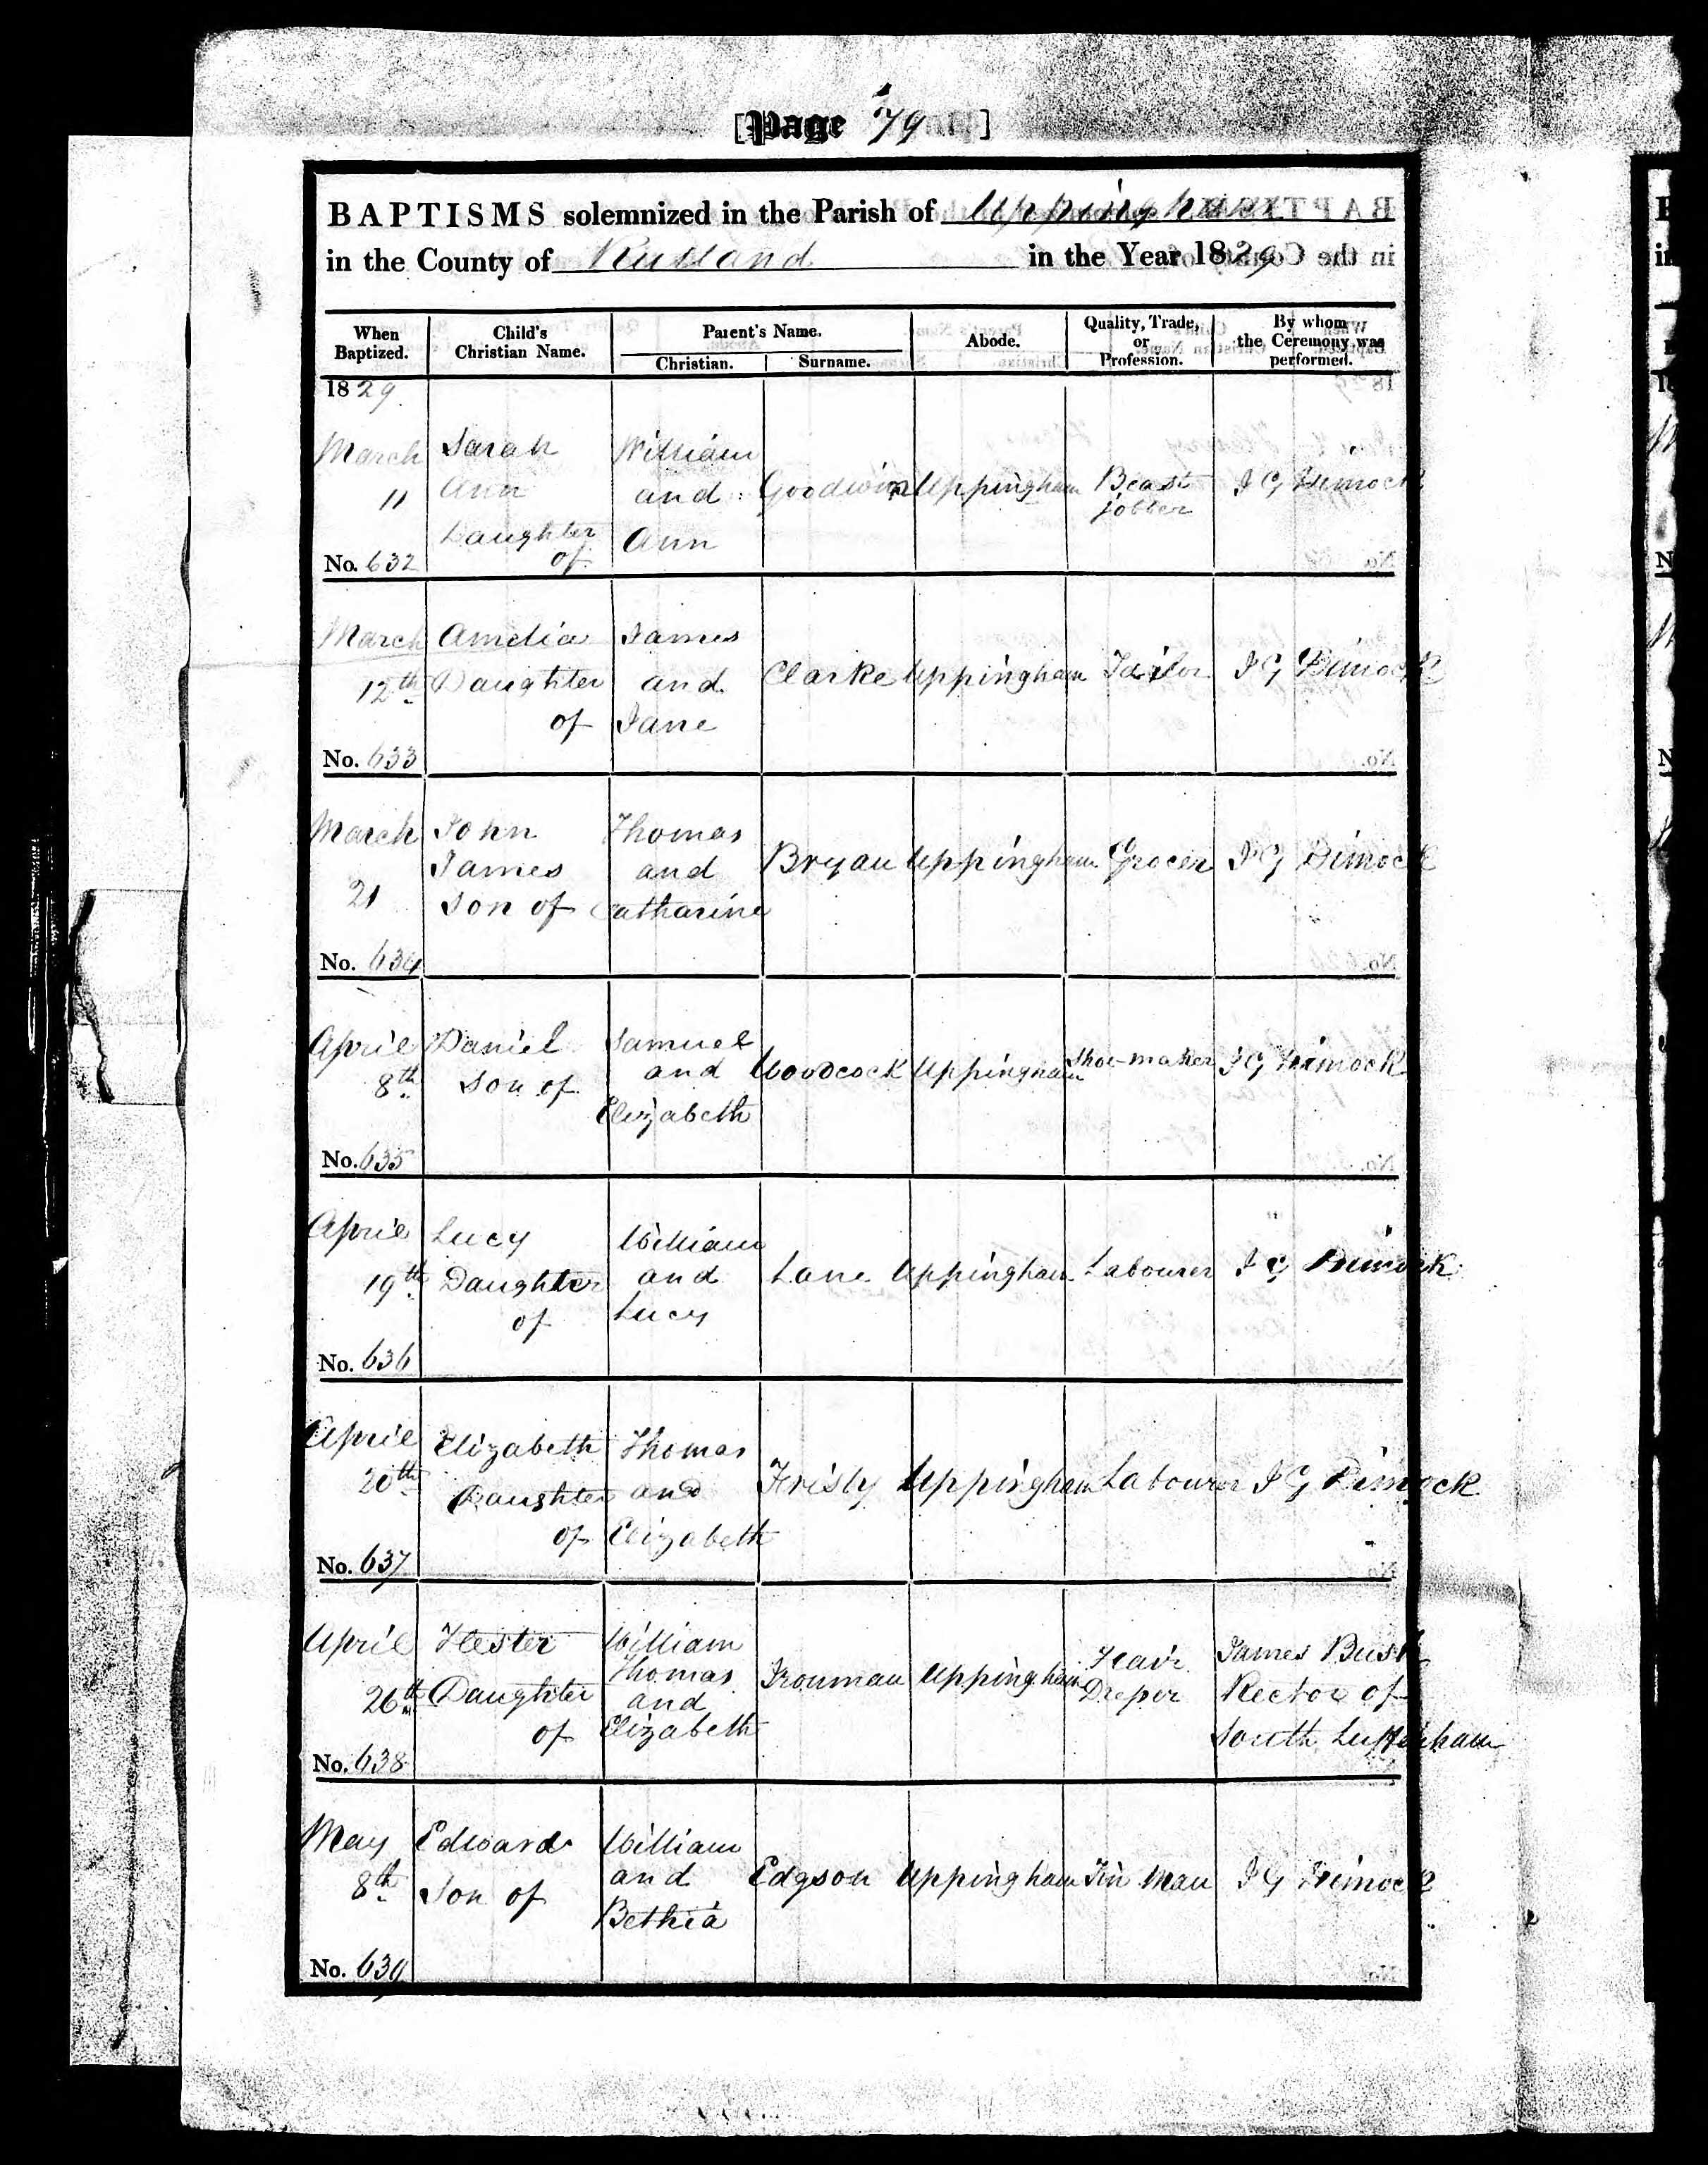 [Page 79]
BAPTISMS solemnized in the Parish of Uppingham
in the County of Rutland in the Year 1829
When Baptized.
Child's Christian Name.
Parent's Name.
Christian.
Surname.
Abode.
Quality, Trade, or Profession.
By whom the Ceremony was performed.
1829
March 11
No. 632
Sarah
Ann
Daughter
of
William
and
Ann
Goodwin
Uppingham
Beast
jobber
J G Dimock
March 12th
No. 633
Amelia
Daughter
of
James
and
Jane
Clarke
Uppingham
Tailor
J G Dimock
March 21
No. 634
John
James
Son of
Thomas
and
Catharine
Bryan
Uppingham
Grocer
J G Dimock
April 8th
No. 635
Daniel
Son of
Samuel
and
Elizabeth
Woodcock
Uppingham
Shoe-maker
J G Dimock
April 19th
No. 636
Lucy
Daughter
of
William
and
Lucy
Lane
Uppingham
Labourer
J G Dimock
April 20th
No. 637
Elizabeth
Daughter
of
Thomas
and
Elizabeth
Frisby
Uppingham
Labourer
J G Dimock
April 26th
No. 638
Hester
Daughter
of
William
Thomas
and
Elizabeth
Ironman
Uppingham
Hair
Dreper
James Bush
Rector of
South Luffenham
May 8th
No. 639
Edward
Son of
William
and
Bethia
Edgson
Uppingham
Tin Man
J G Dimock